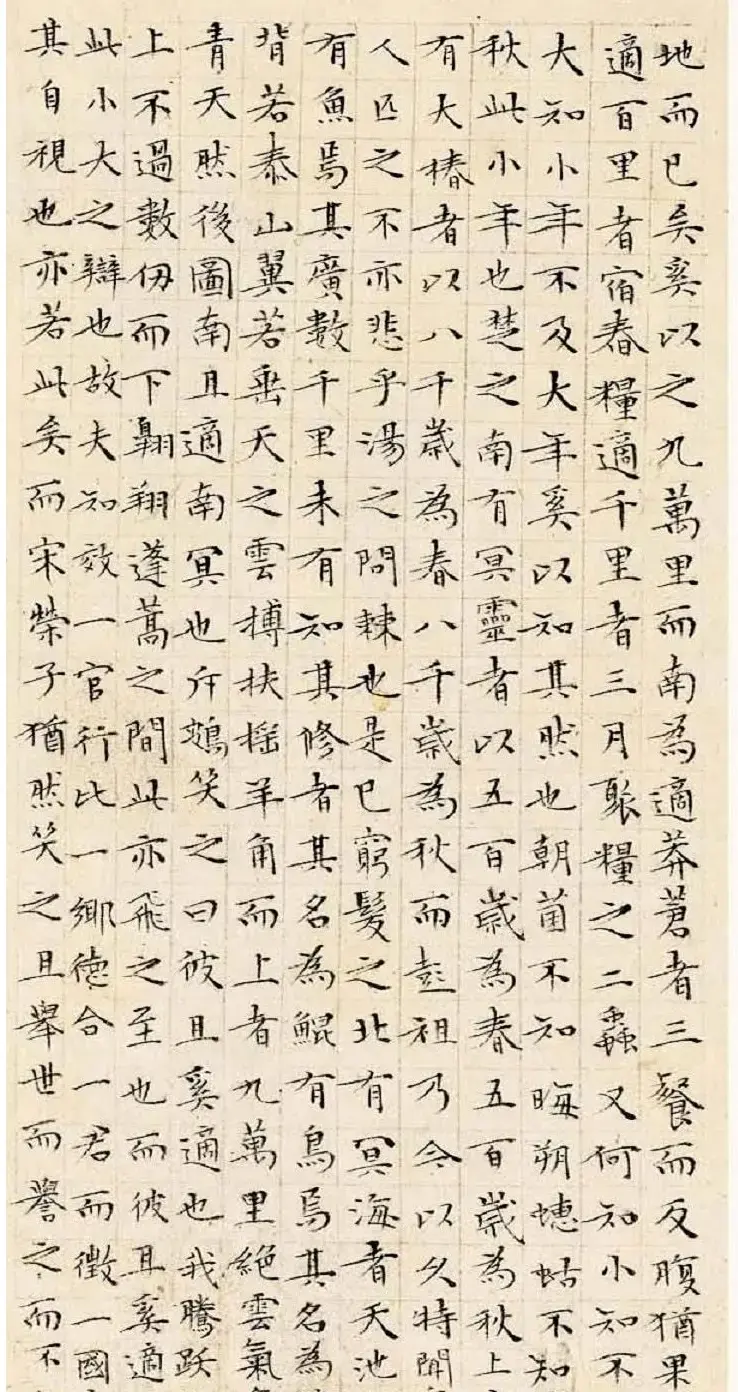 地而已矣奚以之九萬里而南為適莽蒼者三餐而反腹猶果
適百里者宿舂糧適千里者三月聚糧之二蟲又何知小知不
大知小年不及大年奚以知其然也朝菌不知晦朔蟪蛄不知
秋此小年也楚之南有冥靈者以五百歲為春五百歲為秋上
有大椿者以八千歲為春八千歲為秋而彭祖乃今以久特聞
人匹之不亦悲乎湯之問棘也是已窮髮之北有冥海者天池
有魚焉其廣數千里未有知其修者其名為鯤有鳥焉其名為
背若泰山翼若垂天之雲摶扶搖羊角而上者九萬里絕雲氣
青天然後圖南且適南冥也斥鴳笑之曰彼且奚適也我騰躍
上不過數仞而下翱翔蓬蒿之間此亦飛之至也而彼且奚適
此小大之辯也故夫知效一官行比一鄉德合一君而徵一國
其自視也亦若此矣而宋榮子猶然笑之且舉世而譽之而不